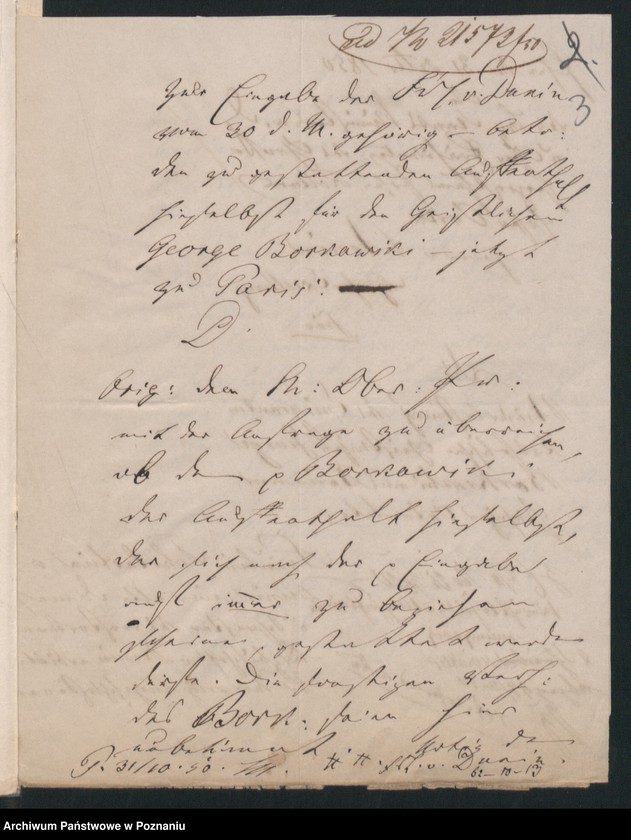 ad No 21573/50
2.
3
Zur Eingabe der Frl. v. Dunin
vom 30 d. M. gehörig – betr:
den zu gestattenden Aufenthalt
hieselbst für den Geistlichen
George Borkowski – jetzt
zu Paris.
D.
Orig: dem H: Ober: Pr:
mit der Anfrage zu überreichen,
ob dem p Borkowski
der Aufenthalt hieselbst,
der sich nach der p Eingabe
auf immer zu beziehen
scheine, gestattet werden
dürfe. Die sonstigen Verh:
des Bork. seien hier
unbekannt
P. 31/10. 50.
v. Dunin.